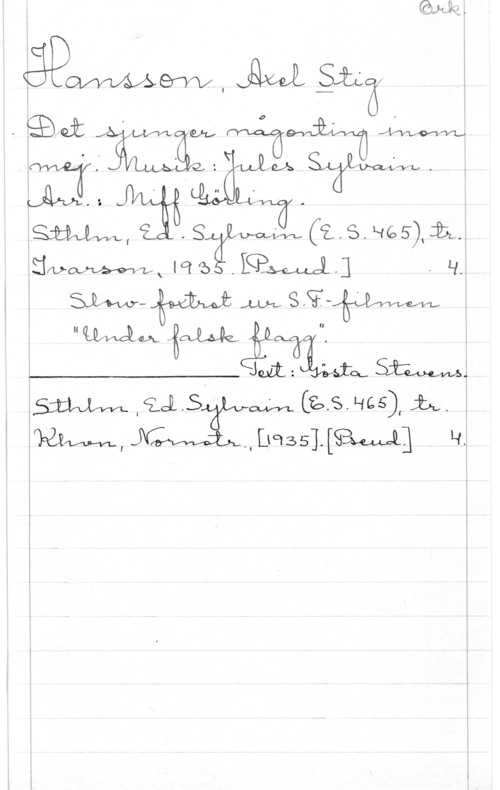 Ork.
Hansson, Axel Stig
Det sjunger någonting inom
mej. Musik: Jules Sylvain.
Arr.: Miff Görling.
Sthlm, Ed. Sylvain (E.S. 465), tr.
Ivarson, 1935. [Pseud.] 4.
Slow-foxtrot ur S.F.-filmen
"Under falsk flagg".
Text: Gösta Stevens.
Sthlm, Ed. Sylvain (E.S. 465), tr.
Khvn, Nornotr., [1935]. [Pseud.] 4.